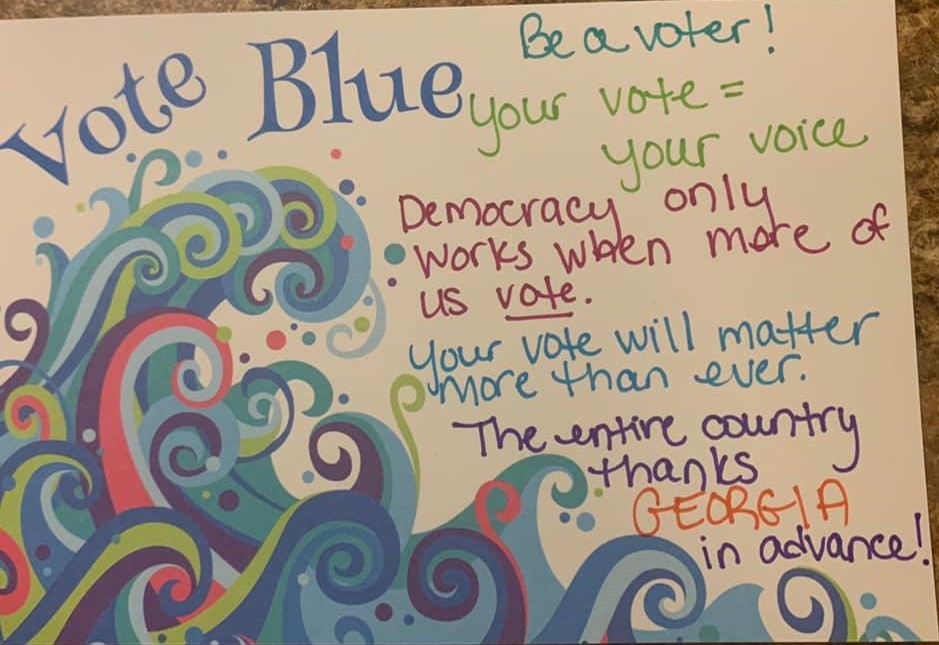 Vote Blue
Be a voter!
your vote =
your voice
Democracy only
works when more of
us vote.
your vote will matter
more than ever.
The entire country
thanks
GEORGIA
in advance!